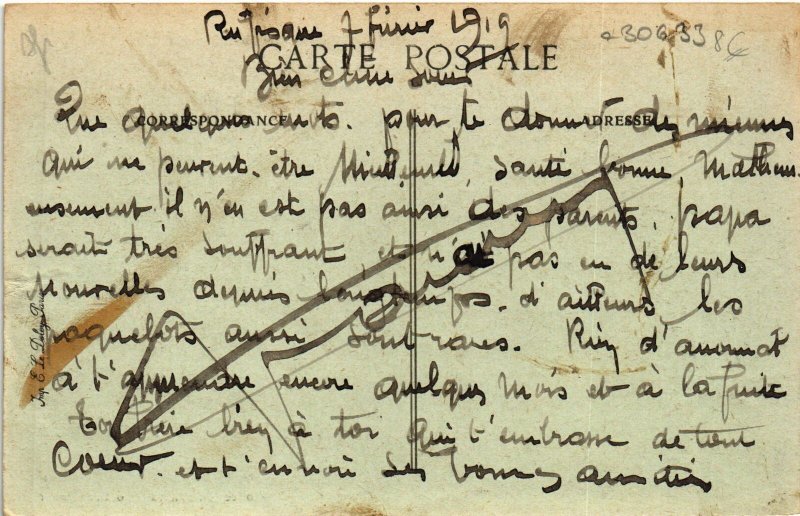 Rufisque 7 février 1919
306338
CARTE POSTALE
Bien chère soeur
CORRESPONDANCE
ADRESSE
Que quelques mots pour te donner des miennes
qui ne peuvent être meilleures santé bonne. Malheu
eusement il n'en est pas ainsi des parents, papa
serait très souffrant et n'ai pas eu de leurs
Nouvelles depuis longtemps. d'ailleurs les
paquebots aussi sont rares. Rien d'anormal
à t'apprendre encore quelques mois et à la fuite
Ton frère bien à toi qui t'embrasse de tout
Coeur. et t'envoie ses bonnes amitiés